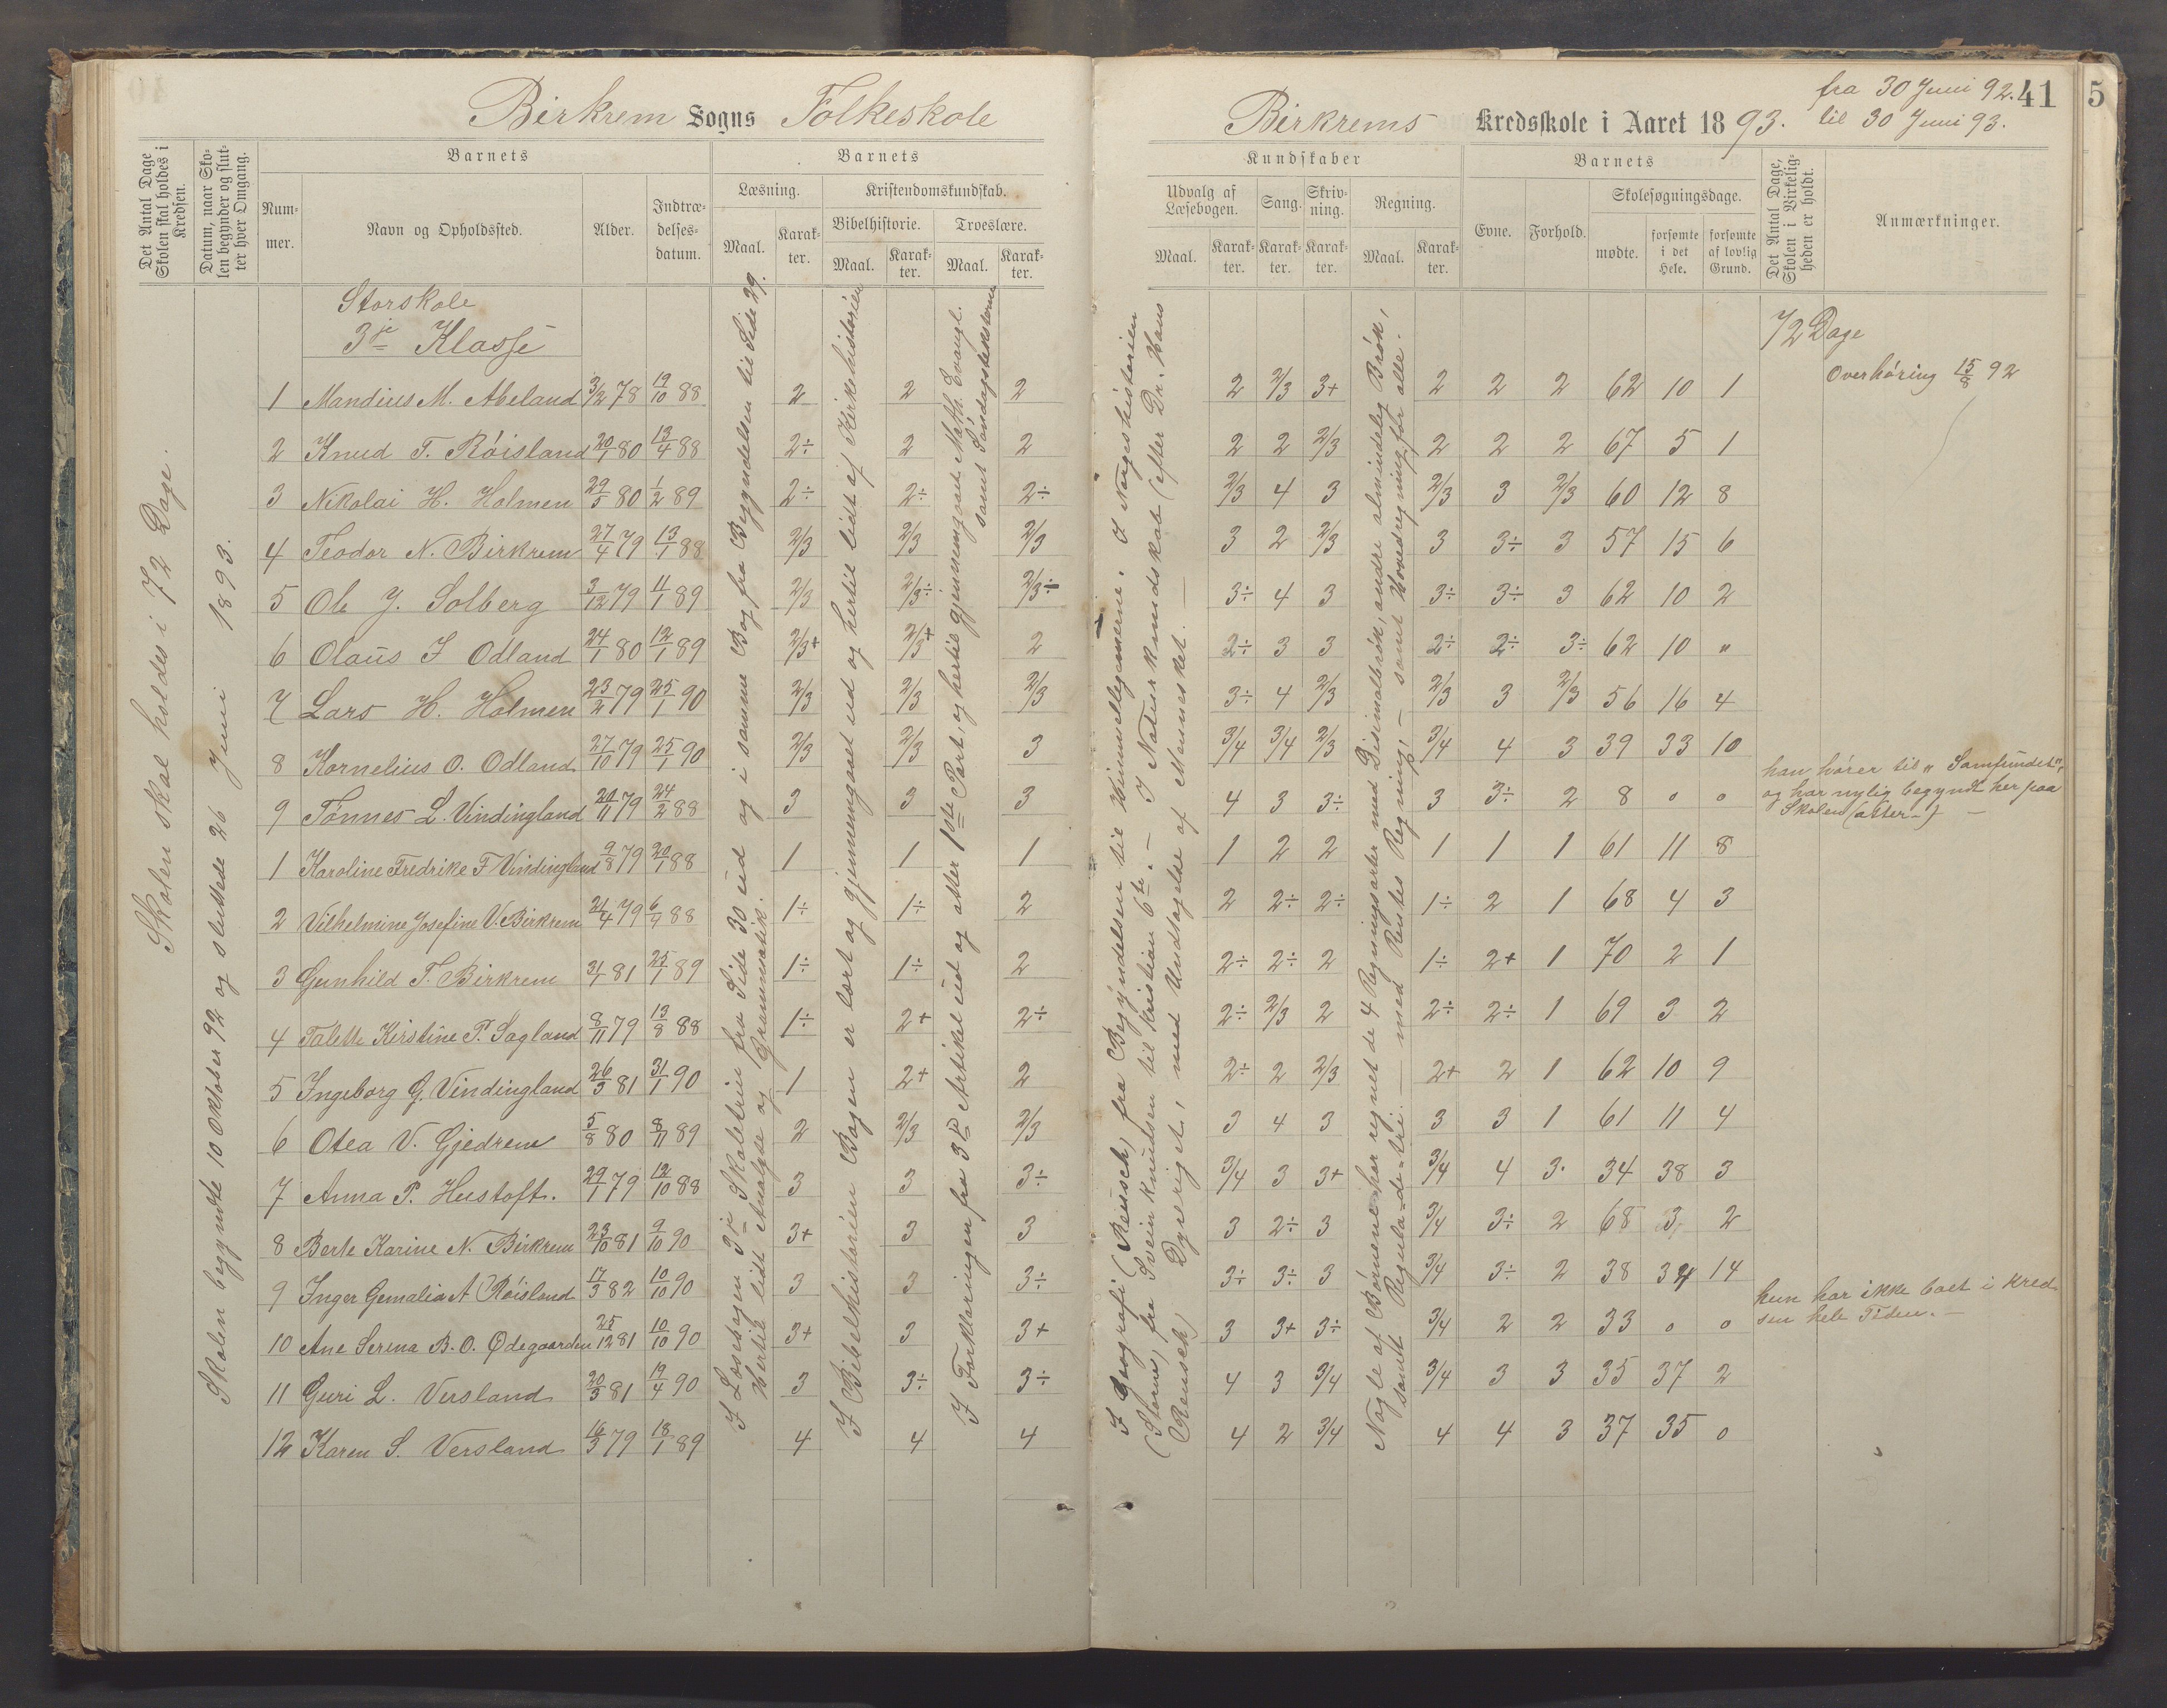 Birkrem Sogns Folkeskole
Det Antal Dage Skolen skal holdes i Kredsen.
Datum, naar Skolen begynder og slutter hver Omgang.
Barnets
Nummer.
Navn og Opholdssted.
Alder.
Indtrædelsesdatum.
Barnets
Læsning.
Maal.
Karakter.
Kristendomskundskab.
Bibelhistorie.
Maal.
Karakter.
Troeslære.
Maal.
Karakter.
Skolen skal holdes i 72 Dage.
Skolen begyndte 10 Oktober 92 og sluttede 26 Juni 1893.
Storskole
3je Klasse
1 Mandius M. Abeland 3/12 78 19/10 88 2 2 2
2 Knud T. Röisland 20/1 80 13/4 88 2÷ 2 2
3 Nikolai H. Holmen 29/5 80 1/2 89 2÷ 2÷ 2÷
4 Teodor N. Birkrem 27/4 79 13/1 88 2/3 2/3 2/3
5 Ole J. Solberg 3/12 79 11/1 89 2/3 2/3÷ 2/3÷
6 Olaus I Odland 24/1 80 12/1 89 2/3+ 2/3+ 2
7 Lars H. Holmen 23/2 79 25/1 90 2/3 2/3 2/3
8 Kornelius O. Odland 27/10 79 25/1 90 2/3 2/3 3
9 Tönnes L. Vindingland 21/11 79 24/2 88 3 3 3
1 Karoline Fredrike F Vindingland 9/8 79 20/1 88 1 1 1
2 Vilhelmine Josefine V. Birkrem 21/4 79 6/9 88 1÷ 1÷ 2
3 Gunhild T. Birkrem 3/1 81 25/1 89 1÷ 1÷ 2
4 Talette Kirstine P. Sagland 8/11 79 13/8 88 1÷ 2+ 2÷
5 Ingeborg G. Vindingland 26/3 81 31/1 90 1 2+ 2
6 Otea V. Gjedrem 5/8 80 8/11 89 2 2/3 2/3
7 Anna P. Hustoft. 29/1 79 12/10 88 3 3 3÷
8 Berte Karine N. Birkrem 23/10 81 9/10 90 3+ 3 3
9 Inger Gemalia A Röisland 17/3 82 10/10 90 3 3 3÷
10 Ane Serina B. O. Ødegaarden 25/12 81 10/10 90 3+ 3 3+
11 Guri L. Versland 20/3 81 19/4 90 3 3÷ 3÷
12 Karen S. Versland 16/3 79 18/1 89 4 4 4
I Læsebogen 3je Skoletrin fra Side 30 ud og i samme Bog fra Begyndelsen til Side 29.
Hertil lidt Analyse og Grammatik.
I Bibelhistorien Bogen er lært og gjennemgaaet ud og hertil lidt af Kirkehistorien
I Forklaringen fra 3die Artikel ud og atter 1ste Part, og hertil gjennemgaaet Math. Evangl.
samt Söndagsteksterne
Birkrems Kredsskole i Aaret 1893.
fra 30 Juni 92.
til 30 Juni 93.
41
5
Kundskaber
Udvalg af Læsebogen.
Maal.
Karakter.
Sang.
Karakter.
Skrivning.
Karakter.
Regning.
Maal.
Karakter.
Barnets
Evne.
Forhold.
Skolesøgningsdage.
mødte.
forsømte i det Hele.
forsømte af lovlig Grund.
Det Antal Dage, Skolen i Virkeligheden er holdt.
Anmærkninger.
72 Dage
Overhöring 15/8 92
2 2/3 3+ 2 2 2 62 10 1
2 2 2/3 2 2 2 67 5 1
2/3 4 3 2/3 3 2/3 60 12 8
3 2 2/3 3 3÷ 3 57 15 6
3÷ 4 3 3÷ 3÷ 3 62 10 2
2÷ 3 3 2÷ 2÷ 3÷ 62 10 "
3÷ 4 2/3 2/3 3 2/3 56 16 4
3/4 3/4 2/3 3/4 4 3 39 33 10
4 3 3÷ 3 3÷ 2 8 0 0
han hörer til "Samfundet",
og har nylig begyndt her paa
Skolen (atter-) —
1 2 2 1 1 1 61 11 8
2 2÷ 2÷ 1÷ 2 1 68 4 3
2÷ 2÷ 2 1÷ 2+ 1 70 2 1
2÷ 2/3 2 2÷ 2÷ 1 69 3 2
2÷ 2 2/3 2+ 2 1 62 10 9
3 4 3 3 3 1 61 11 4
3/4 3 3+ 3/4 4 3 34 38 3
3 2÷ 3 3/4 3÷ 2 68 3 2
3÷ 3÷ 3 3/4 3÷ 2 38 34 14
3 3+ 3÷ 3/4 2 2 33 0 0
hun har ikke boet i Kred
sen hele Tiden. —
4 3 3/4 3/4 3 3 35 37 2
4 2 3/4 4 4 3 37 35 0
I Geografi (Reusch) fra Begyndelsen til Himmellegemerne. I Norgeshistorien
(Storm) fra Svein Knudsen til Kristian 6te. — I Naturkundskab (efter Dr. Hans
Reusch) Dyreriget, med Undtagelse af Mennesket. —
Nogle af Börnene har regnet de 4 Regningsarter med Desimalbrök, andre almindelig Brök,
samt Regula-de-tri. — med Rentes Regning, — samt Hovedregning for alle.